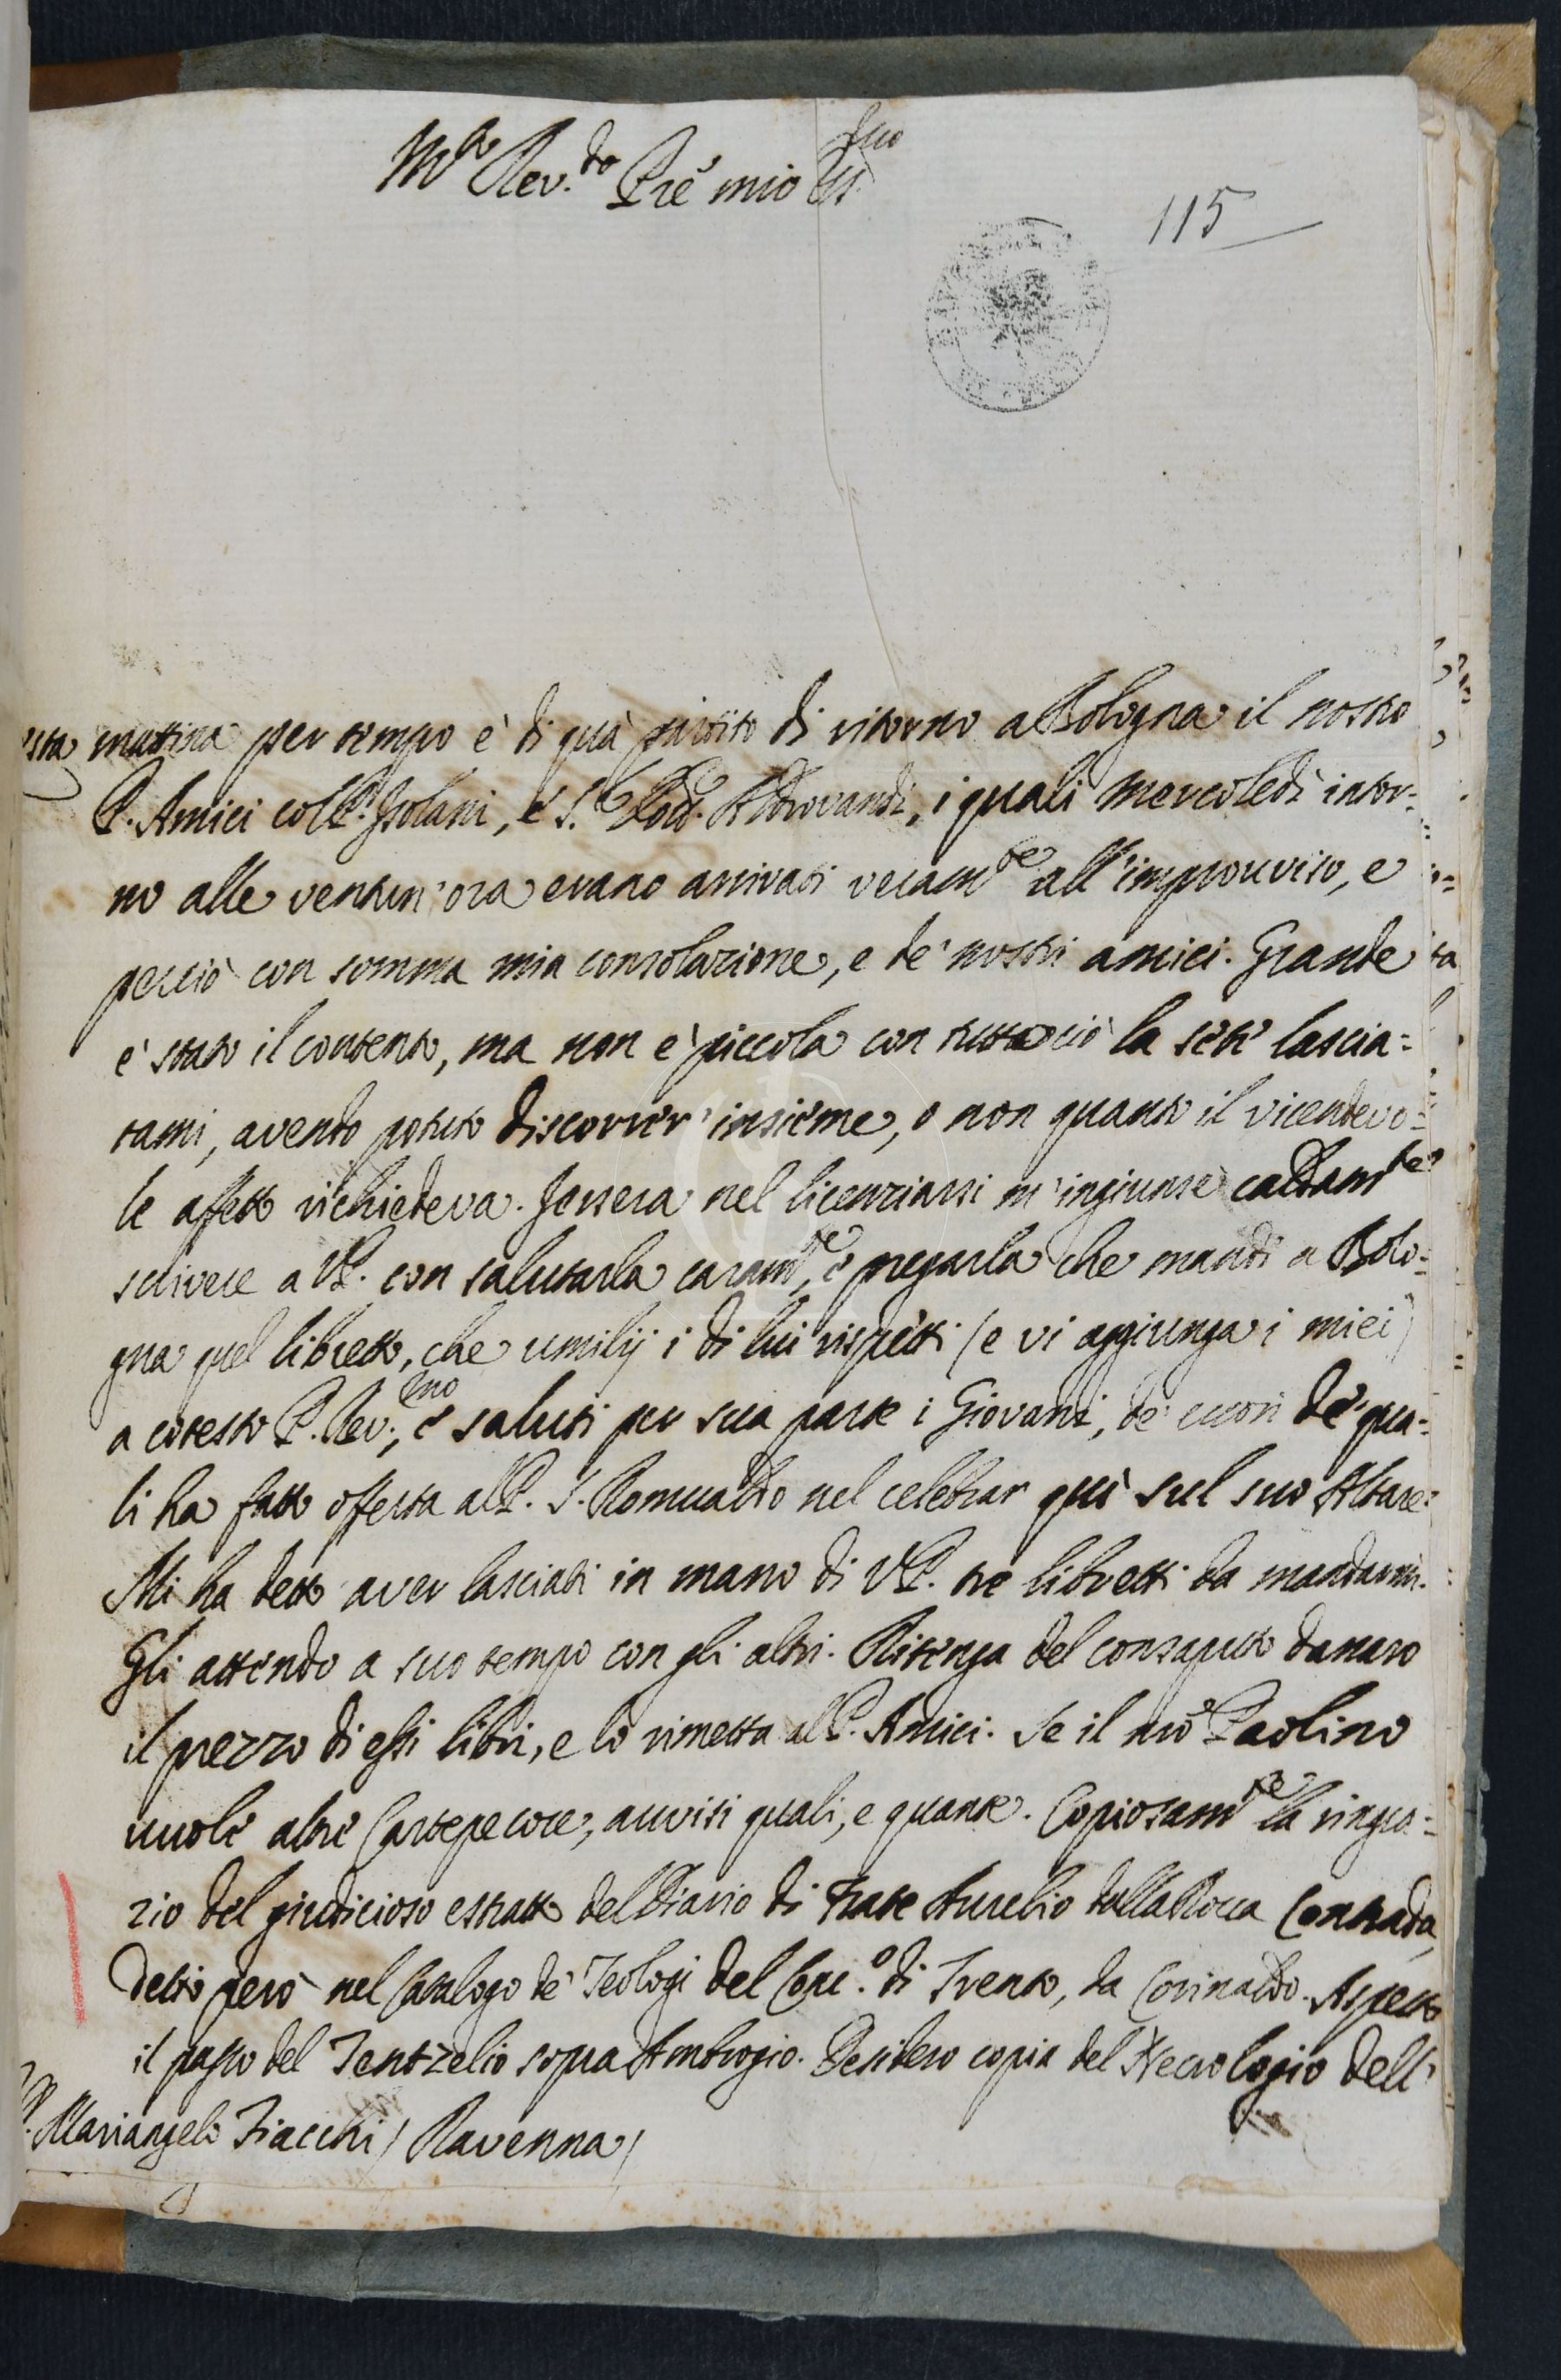 M.to Rev.do Pre mio Oss.mo
115
esta mattina per tempo è di quà partito di ritorno a Bologna il nostro
P. Amici col P. Isolani, e S. Aldrovandi, i quali Mercoledì intor=
no alle ventun'ora erano arrivati veram.te all'improuviso, e
perciò con somma mia consolazione, e de' nostri amici. Grande
è stato il contento, ma non è piccola con tutto ciò la sete lascia=
tami, avendo potuto discorrer' insieme, non quanto il vicendevo=
le affetto richiedeva. Jersera nel licenziarsi m'ingiunse caldam.te
scrivere a V.P. con salutarla caram.te, e pregarla che mandi a Bolo=
gna quel libretto, che umilij i di lui rispetti (e vi aggiunga i miei)
a cotesto P. Rev.mo, e saluti per sua parte i Giovani, de' cuori de' qua=
li ha fatto offerta al P. S. Romualdo nel celebrar quì sul suo Altare.
Mi ha detto aver lasciati in mano di V.P. tre libretti da mandarmi.
Gli attendo a suo tempo con gli altri. Ritenga del consaputo danaro
il prezzo di essi libri, e lo rimetta al P. Amici. Se il nro Paolino
vuole altre Cartepecore, auvisi quali, e quante. Copiosam.te la ringra=
zio del giudicioso estratto del Diario di Frate Aurelio dalla Rocca Contrada,
detto però nel Catalogo de' Teologi del Conc.o di Trento, da Corinaldo. Aspetto
il passo del Tentzelio sopra Ambrogio. Desidero copia del Necrologio dell'
P. Mariangelo Fiacchi / Ravenna /